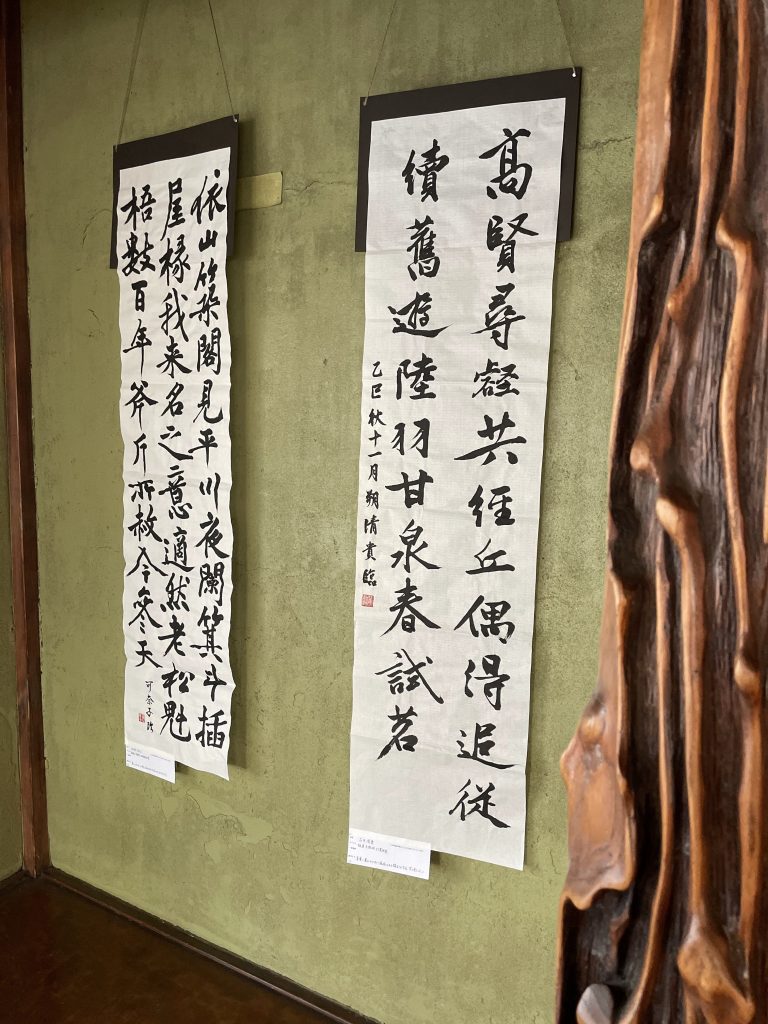 髙賢尋壑共經丘偶得追従
續舊遊陸羽甘泉春試茗
乙巳秋十一月朔清貴臨
依山築閣見平川夜闌箕斗插
屋椽我来名之意適然老松魁
梧數百年斧斤所赦今參天
可奈子臨